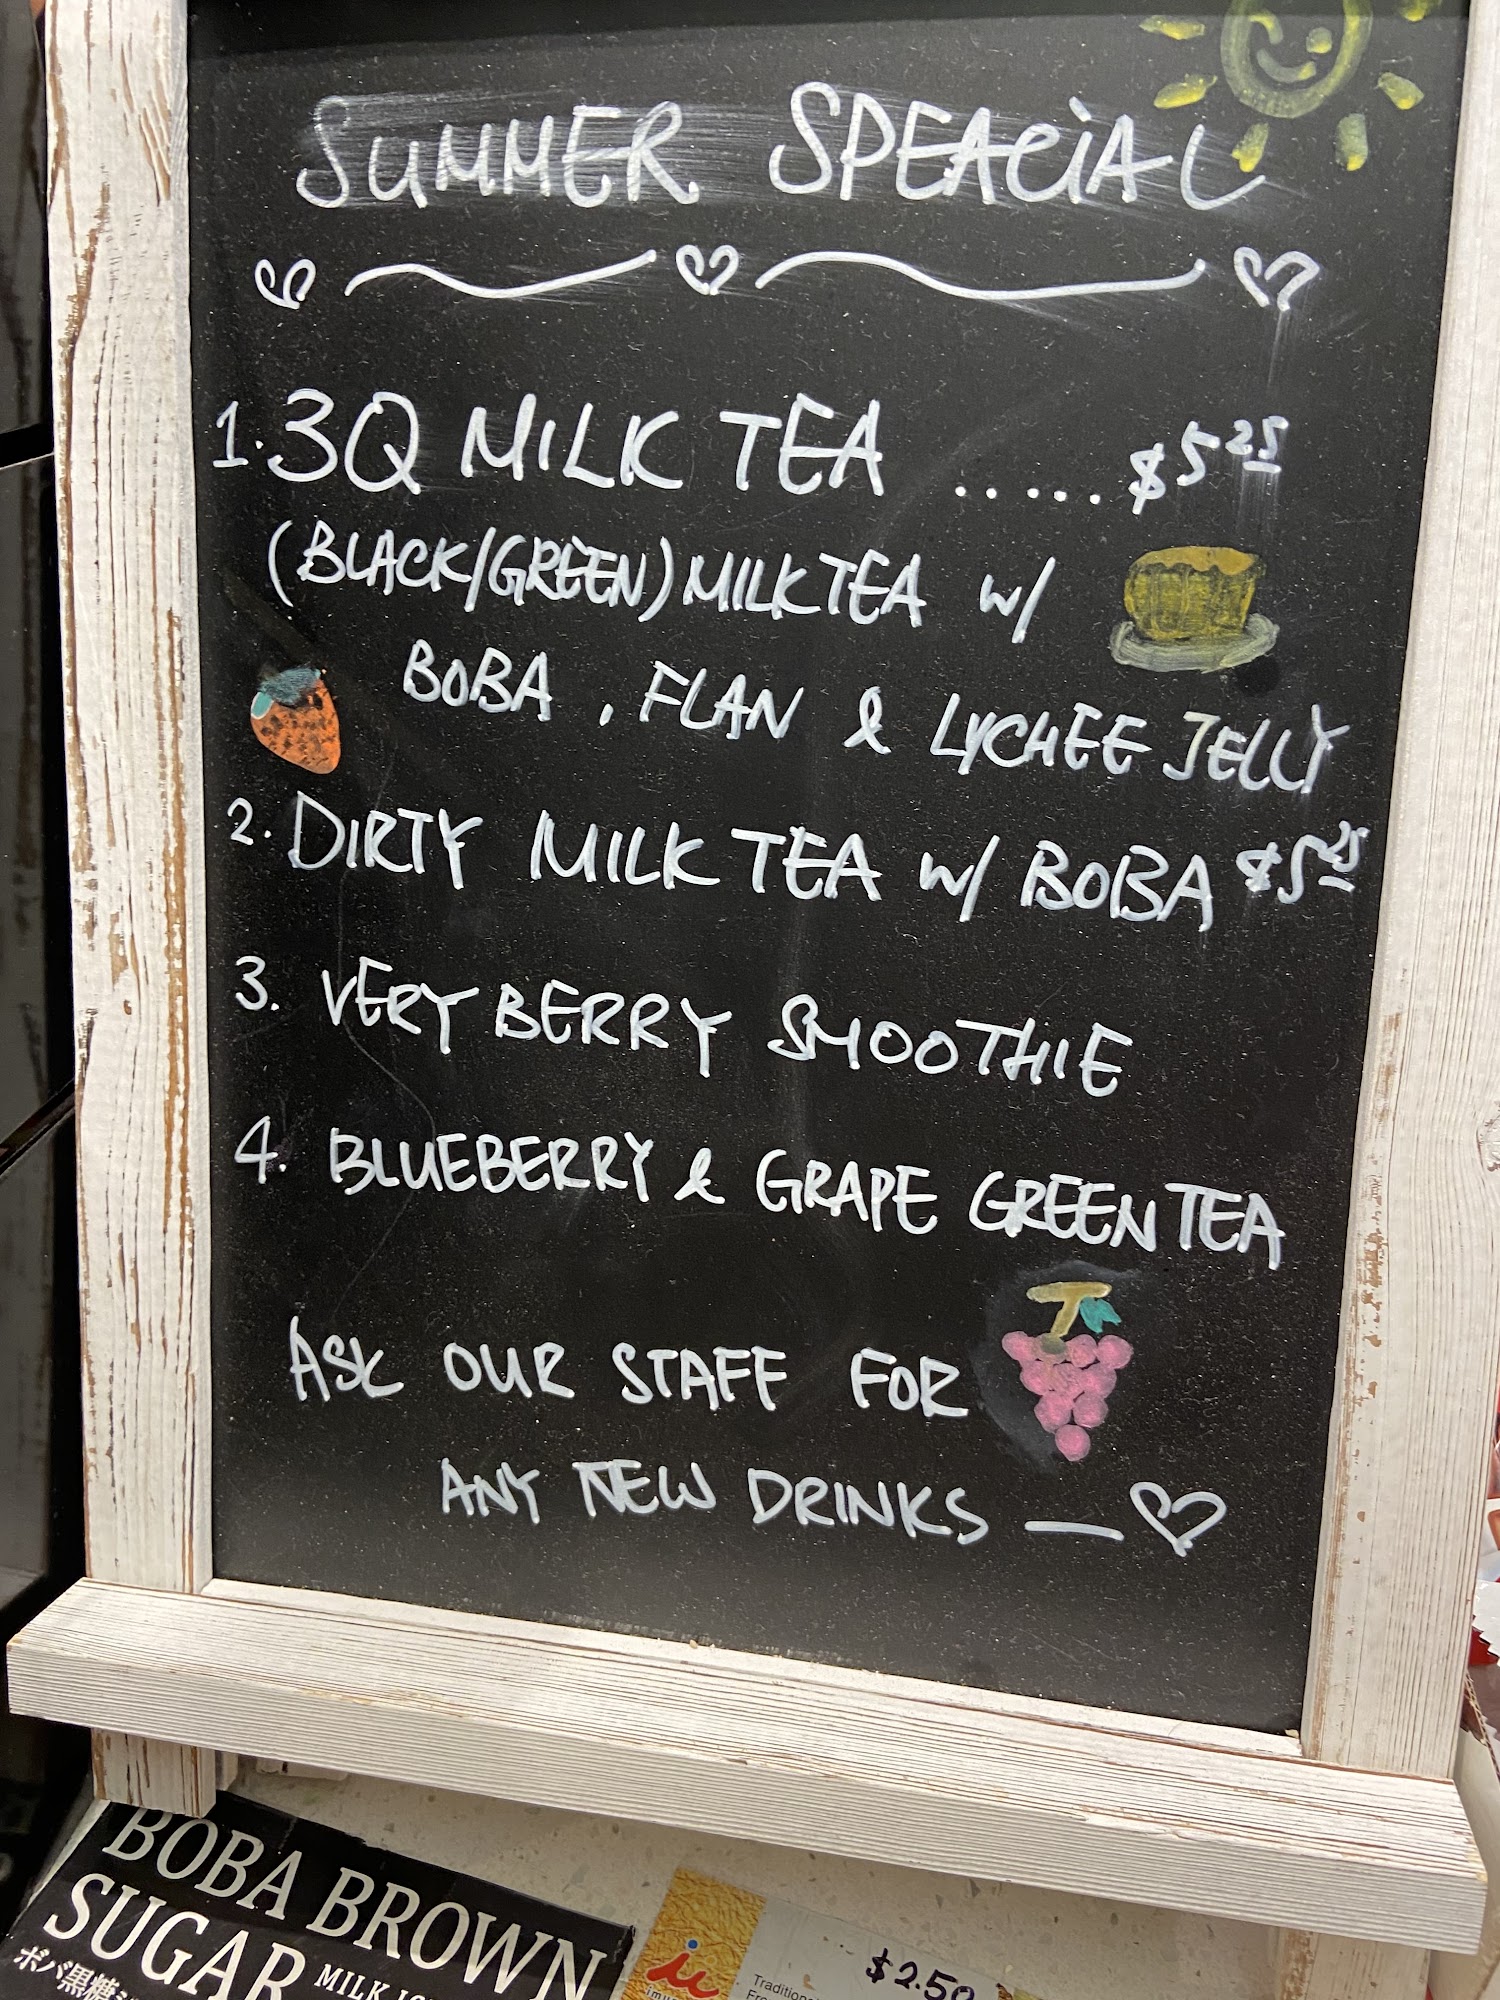 SUMMER SPEACIAL
1. 3Q MILK TEA ...... $5.25
(BLACK/GREEN) MILK TEA w/
BOBA, FLAN & LYCHEE JELLY
2. DIRTY MILK TEA w/ BOBA $5.25
3. VERY BERRY SMOOTHIE
4. BLUEBERRY & GRAPE GREEN TEA
ASK OUR STAFF FOR
ANY NEW DRINKS —
BOBA BROWN
SUGAR MILK
ボバ黒糖
$2.50